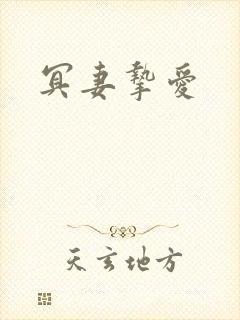 冥妻摯愛
天玄地方